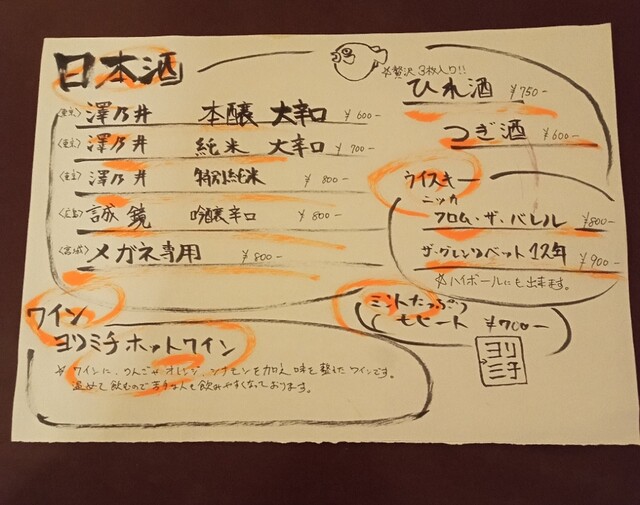 日本酒
〈東京〉 澤乃井 本醸 大辛口 ¥600-
〈東京〉 澤乃井 純米 大辛口 ¥700-
〈東京〉 澤乃井 特別純米 ¥800-
〈広島〉 誠鏡 吟醸辛口 ¥800-
〈宮城〉 メガネ専用 ¥800-
☆贅沢3枚入り!!
ひれ酒 ¥750-
つぎ酒 ¥600-
ウイスキー
ニッカ
フロム・ザ・バレル ¥800-
ザ・グレンリベット12年 ¥900-
☆ハイボールにも出来ます。
ミントたっぷり
モヒート ¥700-
ワイン
ヨリミチホットワイン
☆ワインに、りんごやオレンジ、シナモンを加え味を整えたワインです。
温めて飲むので苦手な人も飲みやすくなっております。
ヨリ
ミチ